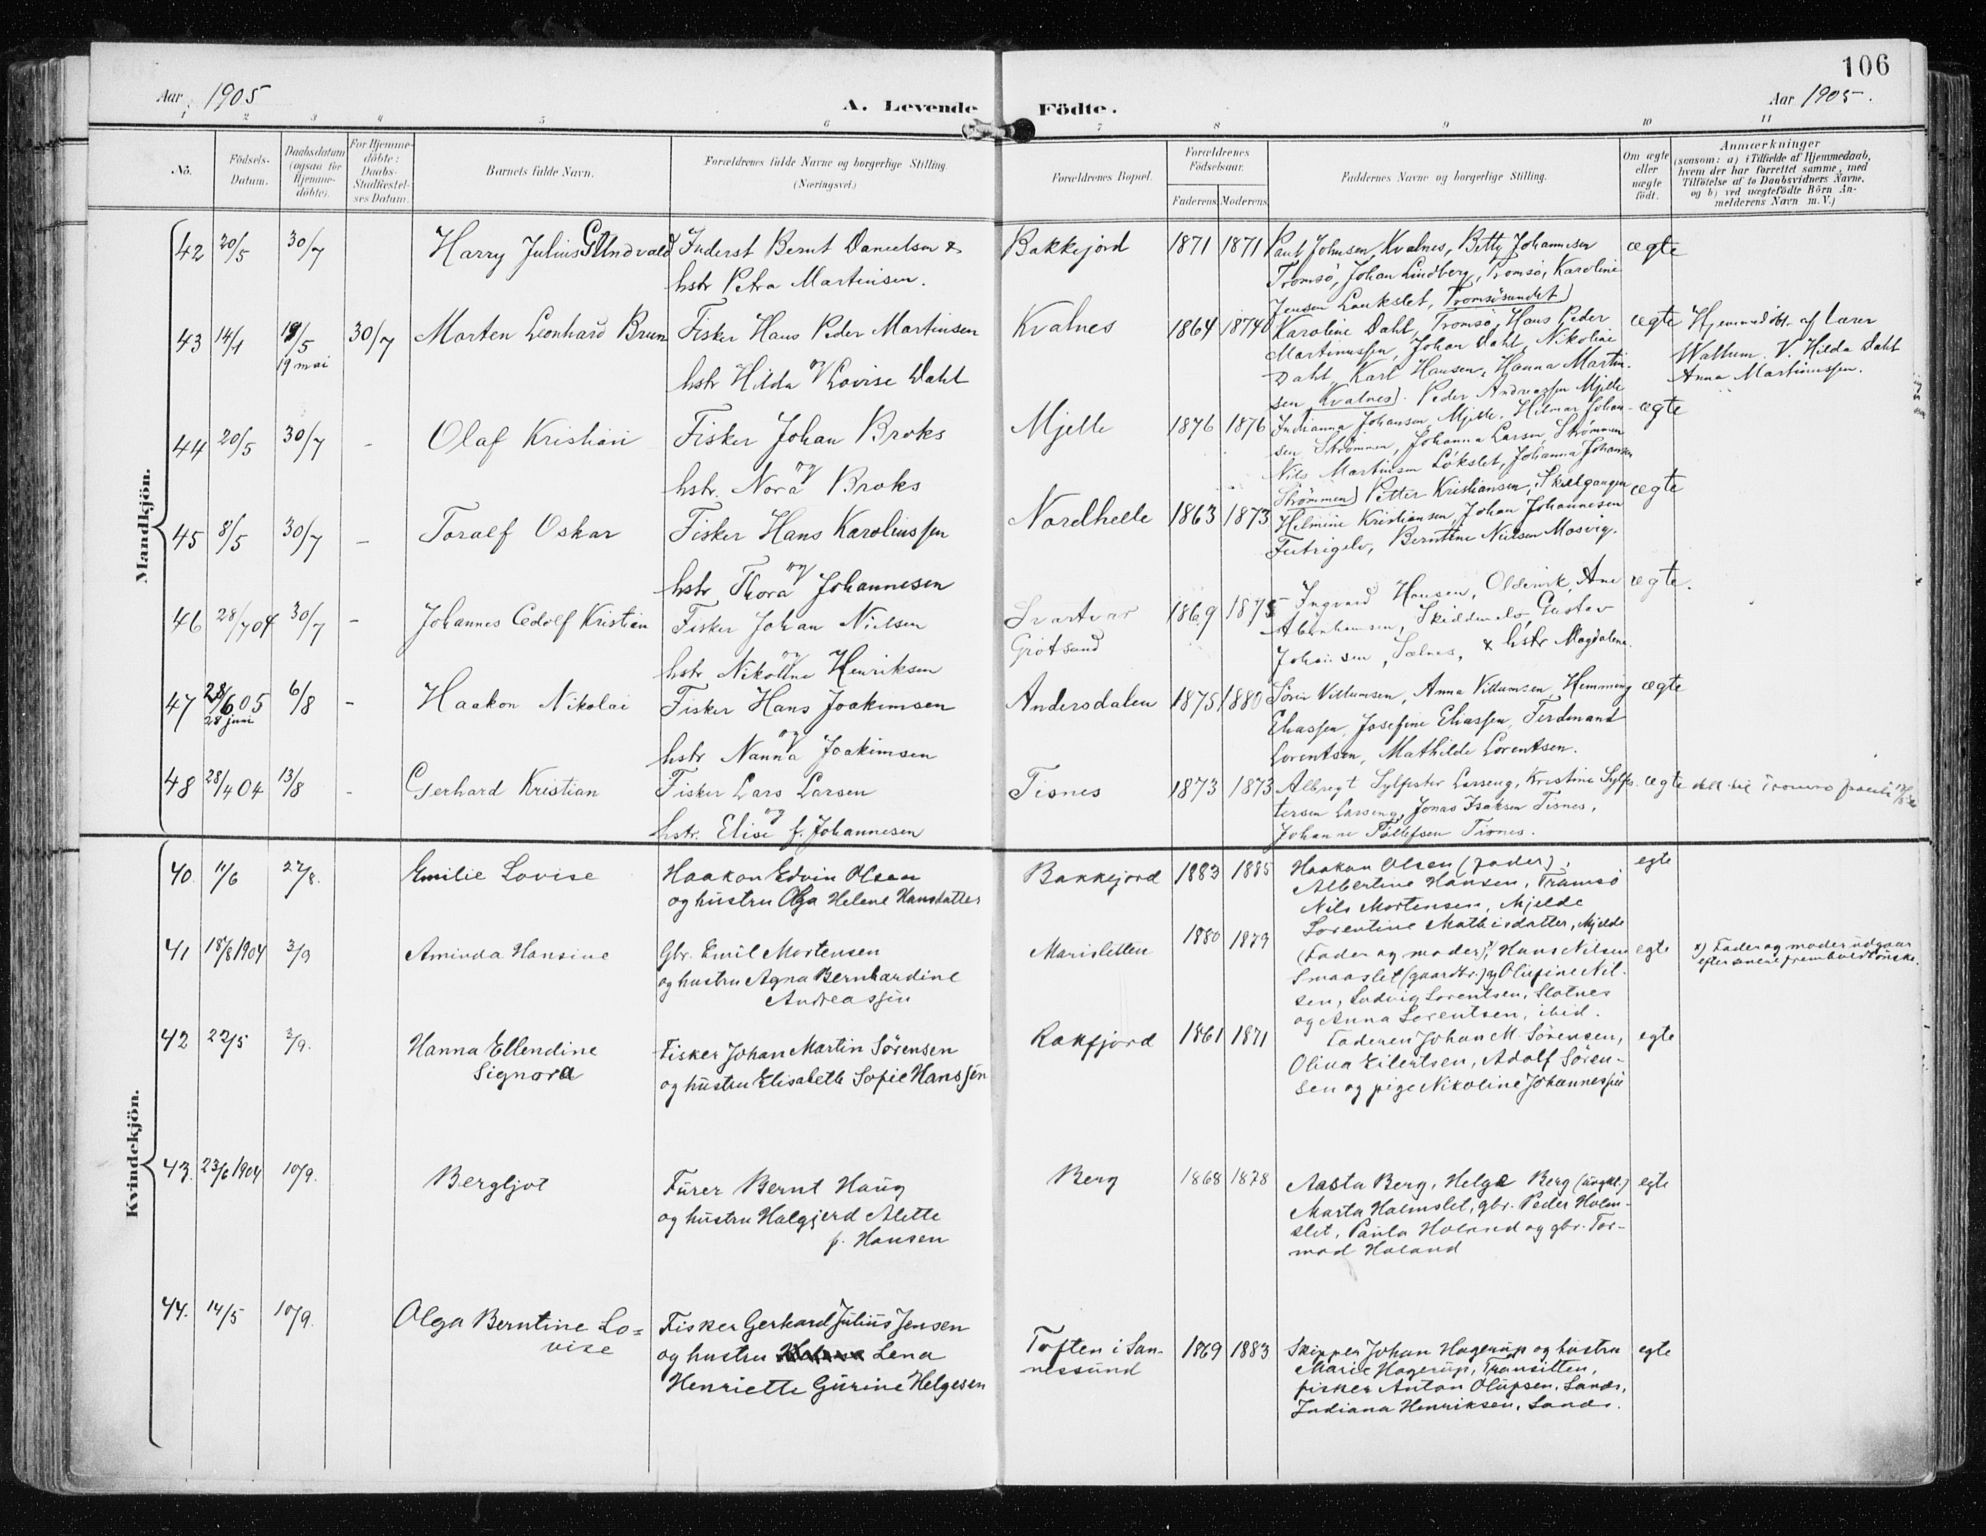 106
Aar 1905
A. Levende Födte.
Aar 1905.
1 2 3 4 5 6 7 8 9 10 11
No.
Födsels-Datum.
Daabsdatum (ogsaa for Hjemme-döbte).
For Hjemme-döbte: Daabs-Stadfæstel-ses Datum.
Barnets fulde Navn.
Forældrenes fulde Navne og borgerlige Stilling. (Næringsvei.)
Forældrenes Bopæl.
Forældrenes Födselsaar.
Faderens Moderens
Faddernes Navne og borgerlige Stilling.
Om ægte eller uægte födt.
Anmærkninger
(saasom: a) i Tilfælde af Hjemmedaab, hvem der har forrettet samme, med Tilföielse af to Daabsvidners Navne, og b) ved uægtefödte Börn An-melderens Navn m. V.)
Mandkjön.
42 20/5 30/7 Harry Julius Inderst Bernt Danielsen &
hstr Petra Martinsen.
Bakkejord 1871 1871 Paul Johnsen, Kvalnes, Betty Johannesen
Tromsö, Johan Lindberg, Tromsö, Karoline
Jensen Laukslet, Tromsösundet)
ægte
43 14/1 19/5 30/7 Morten Leonhard Brun Fisker Hans Peder Martinsen
19 mai
hstr Hilda Lovise Dahl
Kvalnes 1864 1874 Karoline Dahl, Tromsö, Hans Peder
Martinussen, Johan Dahl, Nikolai
Dahl, Karl Hansen, Hanna Martin-
sen Kvalnes). Peder Andreassen Mjelle
ægte Hjemmedöbt af lærer
Wallum. V. Hilda Dahl
Anna Martinussen.
44 20/5 30/7 - Olaf Kristian Fisker Johan Broks
og
hstr. Nora Broks
Mjelle 1876 1876 Indianna Johansen, Mjelle, Hilmar Johan-
sen Strömmen, Johanna Larsen, Strömmen
Nils Martinsen Lökslet, Johanna Johansen
Strömmen) Petter Kristiansen, Skillgangen
ægte
45 8/5 30/7 - Toralf Oskar Fisker Hans Karolinssen
og
hstr Thora Johannesen
Nordhelle 1863 1873 Helmine Kristiansen, Johan Johannesen
Berntine Nielsen Mosvig.
ægte
46 28/7 04 30/7 - Johannes Adolf Kristian Fisker Johan Nielsen
og
hstr Nikoline Henriksen
Svartvær
Grötsund
1869 1875 Ingvard Hansen, Oldervik, Ane
Abrahamsen, Gustav
Johansen, Sælnes, & hstr Magdalena.
ægte.
47 28/6 05 6/8 - Haakon Nikolai Fisker Hans Joakimsen
28 juni
og
hstr Nanna Joakimsen
Andersdalen 1875 1880 Sörin Villumsen, Anna Villumsen, Hemming
Eliassen, Josefine Eliassen, Ferdinant
Lorentsen, Mathilde Lorentsen.
ægte
48 28/4 04 13/8 - Gerhard Kristian Fisker Lars Larsen
og
hstr. Elise f. Johannesen
Tisnes 1873 1873 Albregt Sylfester Larseng, Kristine Sylfes-
tersen Larseng, Jonas Isaksen Tisnes,
Johanne Tollefsen Tisnes.
ægte
Kvindekjön.
40. 11/6 27/8. Emilie Lovise Haakon Edvin Olsen
og hustru Olga Helene Hansdatter
Bakkejord 1883 1885 Haakon Olsen (fader),
Albertine Hansen, Tromsö
Nils Mortensen, Mjelde
Lorentine Mathisdatter, Mjelde
egte
41 18/8 1904 3/9 Aminda Hansine Gbr. Emil Mortensen
og hustru Agna Bernhardine
Andreassen
Marisletten 1880 1879 (Fader og moder), Hans Nilsen
Smaaslet (gaardbr.) og Olufine Nil-
sen, Ludvig Lorentsen, Slotnes
og Anna Lorentsen, ibid.
egte x) Fader og moder udgaar
efter senere fremhold önske.
42 22/5 3/9. Hanna Ellendine Fisker Johan Martin Sörensen
Signora og hustru Elisabeth Sofie Hanssen
Rakfjord 1861 1871 Faderen Johan M. Sörensen,
Olina Eilertsen, Adolf Sören-
sen og pige Nikoline Johannessen
egte
43. 23/6 1904 10/9. Bergljot Furer Bernt Haug
og hustru Halgjerd Alette
f. Hansen
Berg 1868 1878 Aasta Berg, Helge Berg (ungkl.)
Marta Holmslet, gbr. Peder Holm-
slet, Paula Holand og gbr. Tor-
mod Holand
egte
44. 14/5 10/9. Olga Berntine Lo=
vise
Fisker Gerhard Julius Jensen
og hustru Lena
Henriette Gurine Helgesen
Toften i San-
nessund
1869 1883 Skipper Johan Hagerup og hustru
Marie Hagerup, Transitten,
fisker Anton Olufsen, Sandes,
Indiana Henriksen, Sandes.
egte